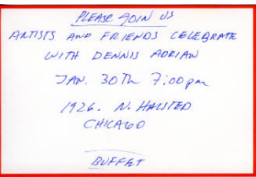 PLEASE JOIN US
ARTISTS AND FRIENDS CELEBRATE
WITH DENNIS ADRIAN
JAN. 30TH 7:00pm
1926. N. HALSTED
CHICAGO
BUFFET